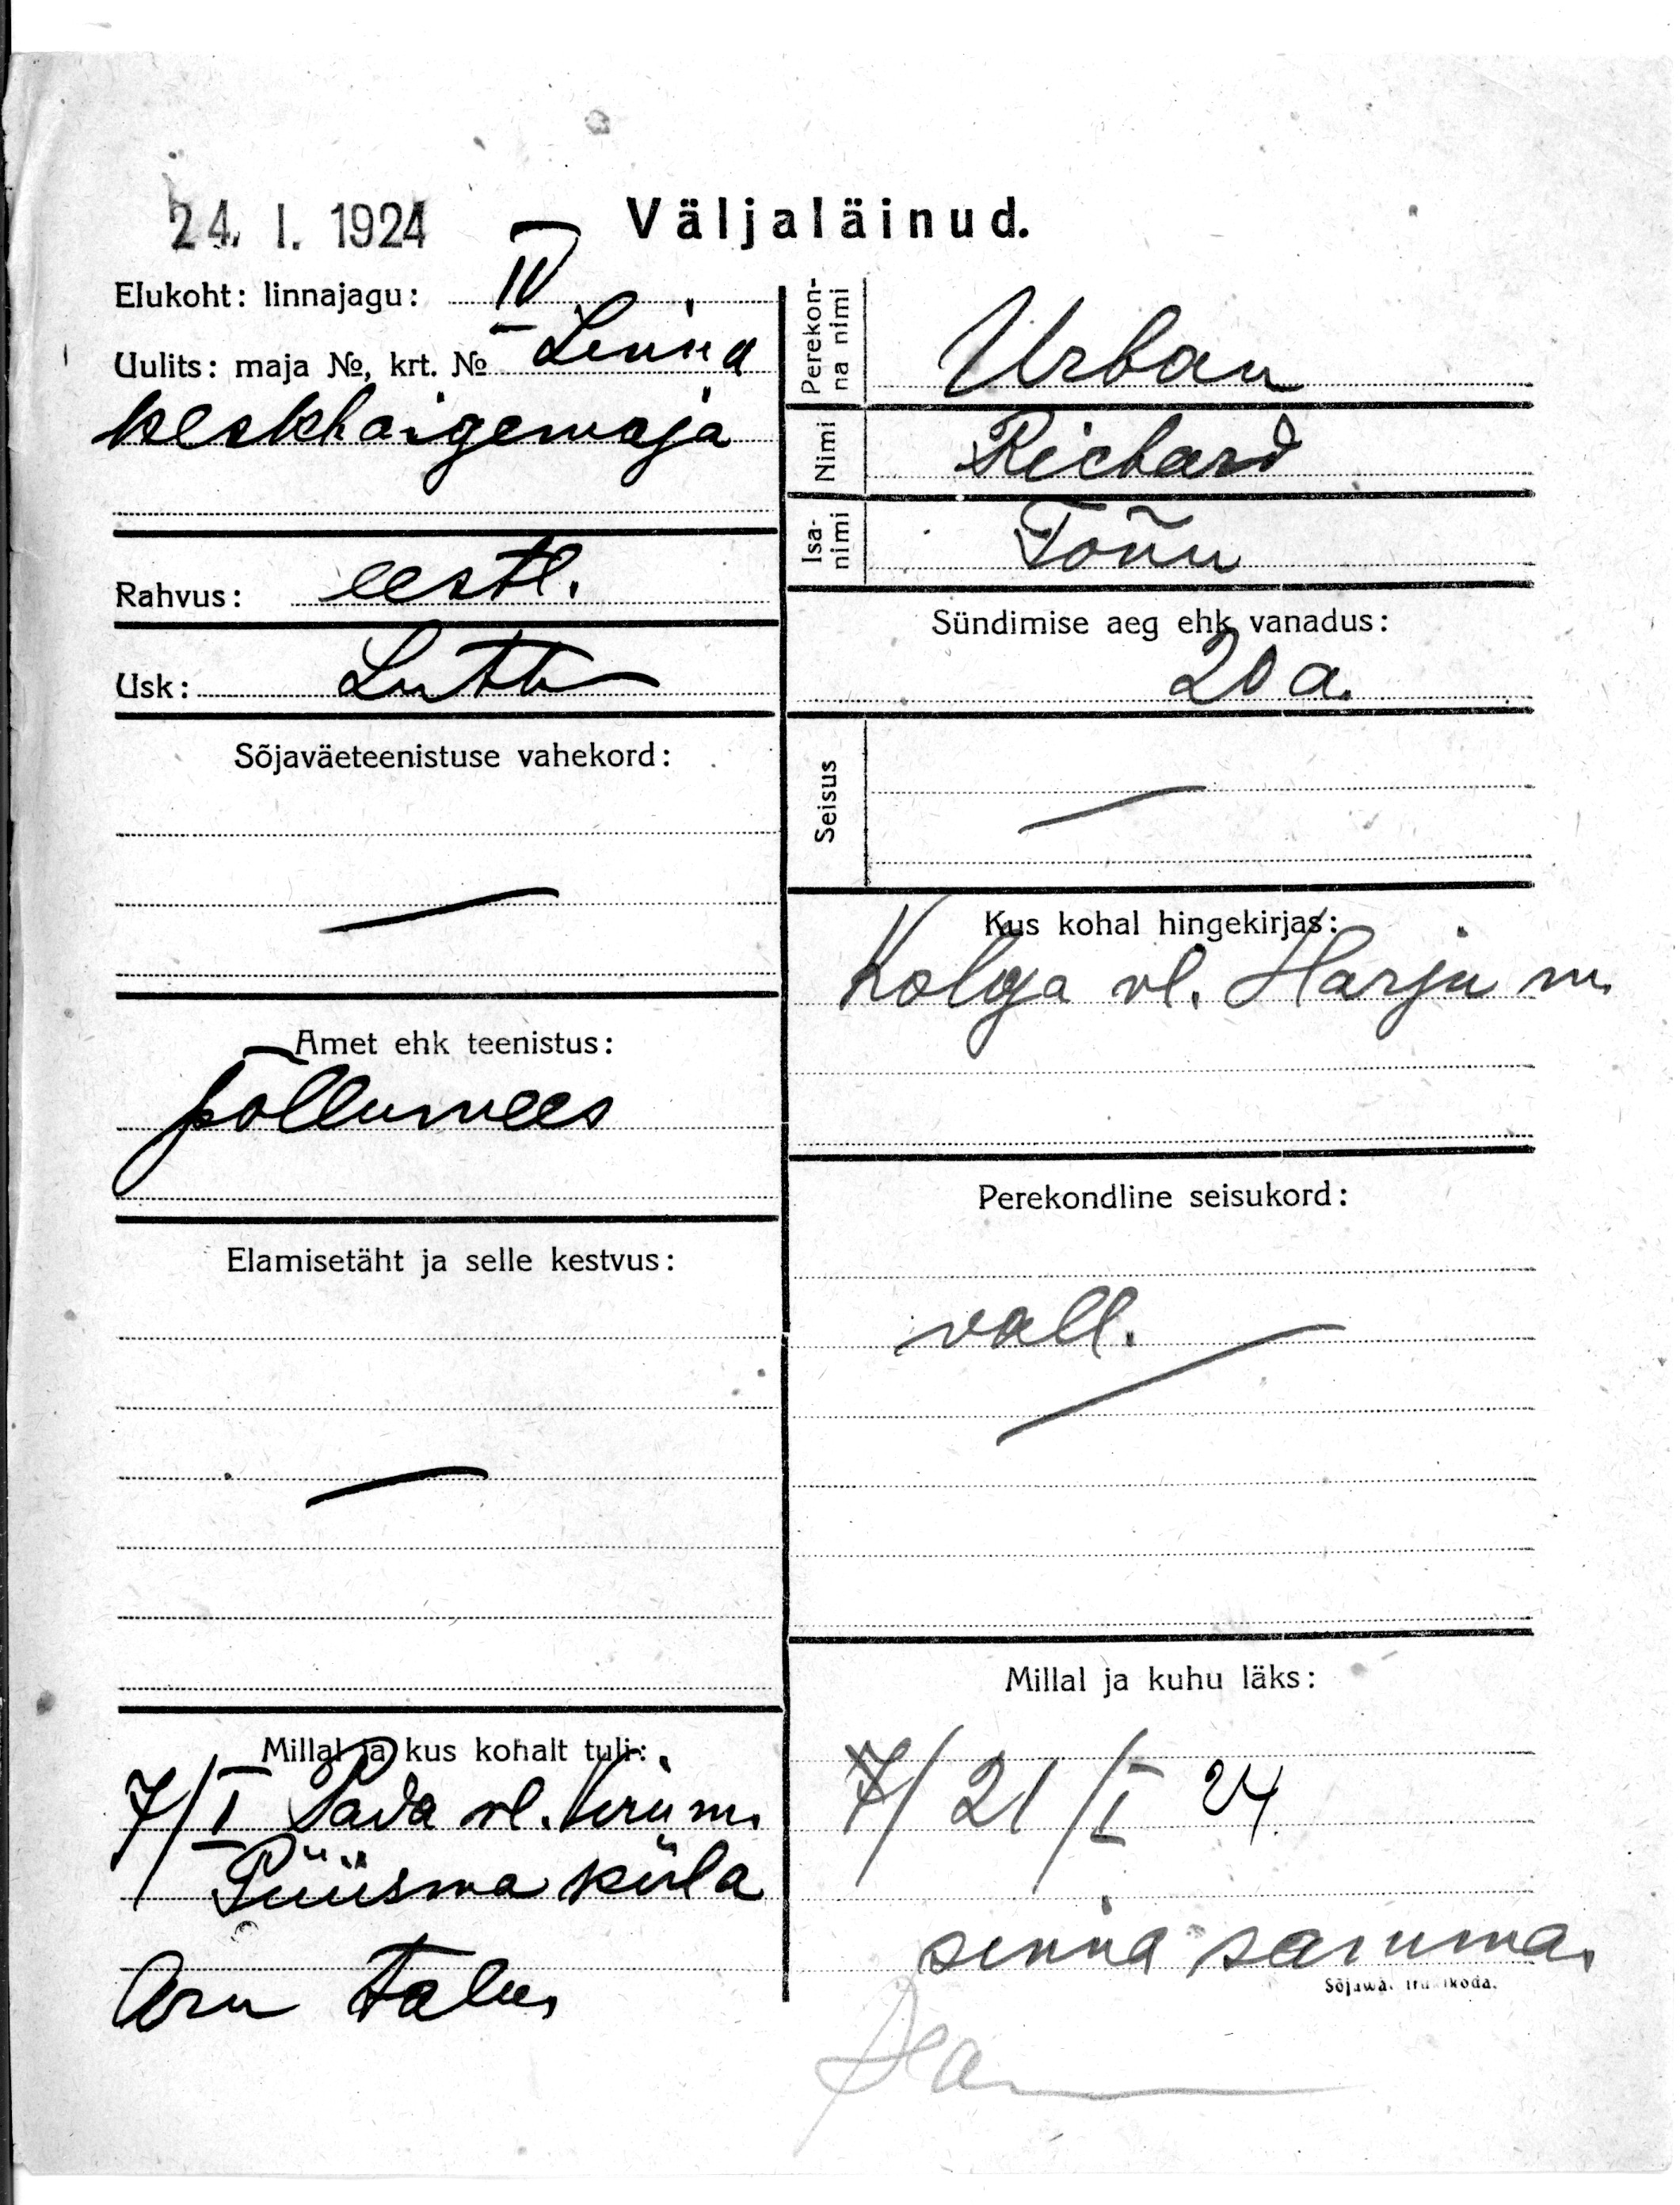 24. I. 1924
Väljaläinud.
Elukoht: linnajagu: IV
Uulits: maja №, krt. № Linna
keskhaigemaja
Rahvus: eestl.
Usk: Luth
Sõjaväeteenistuse vahekord:
—
Amet ehk teenistus:
põllumees
Elamisetäht ja selle kestvus:
—
Millal ja kus kohalt tuli:
7/I Pada vl. Viru m.
Püüsma küla
Aru talu,
Perekon-
na nimi
Urban
Nimi
Richard
Isa-
nimi
Tõnu
Sündimise aeg ehk vanadus:
20 a.
Seisus
—
Kus kohal hingekirjas:
Kolga vl. Harju m.
Perekondline seisukord:
vall.
Millal ja kuhu läks:
7/ 21/I 24
sinna samma.